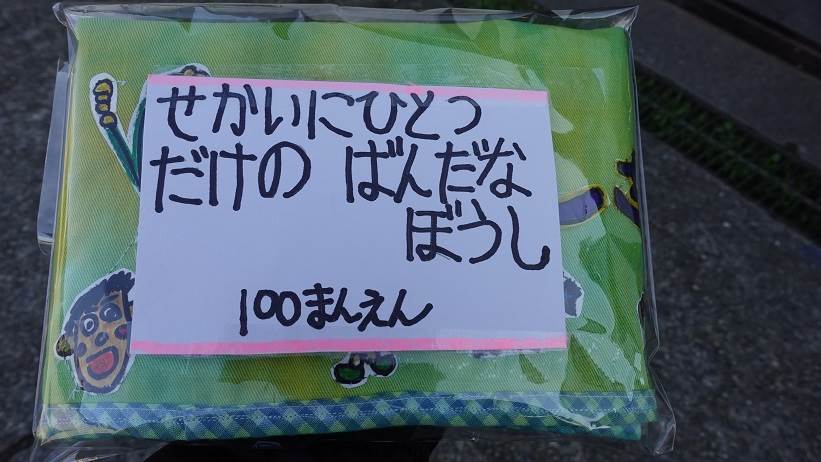 せかいにひとつ
だけの ばんだな
ぼうし
100まんえん